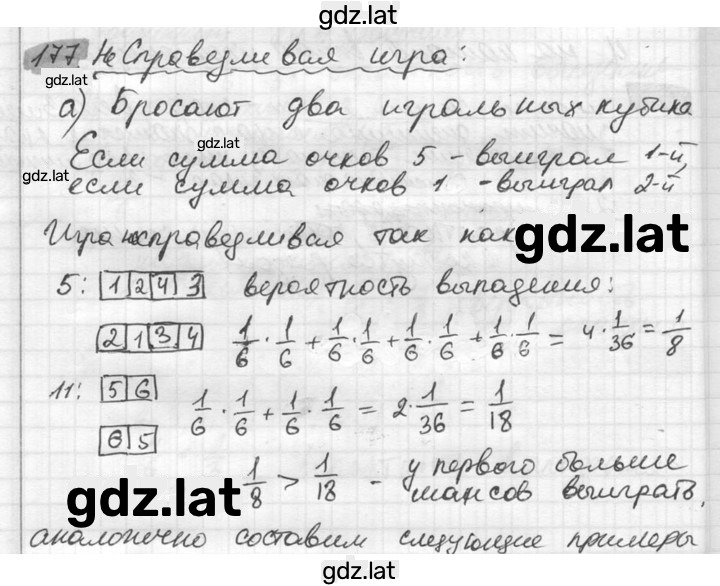 gdz.lat
177 НеСправедливая игра:
gdz.lat
а) Бросают два игральных кубика
Если сумма очков 5 - выиграл 1-й,
gdz.lat
если сумма очков 1 - выиграл 2-й
Игра несправедливая так как
gdz.lat
5: 1 2 4 3 вероятность выпадения:
2 1 3 4 1/6 · 1/6 + 1/6 · 1/6 + 1/6 · 1/6 + 1/6 · 1/6 = 4 · 1/36 = 1/8
11: 5 6 1/6 · 1/6 + 1/6 · 1/6 = 2 · 1/36 = 1/18
6 5
1/8 > 1/18 - у первого больше
шансов выиграть,
gdz.lat
аналогично составим следующие примеры
gdz.lat